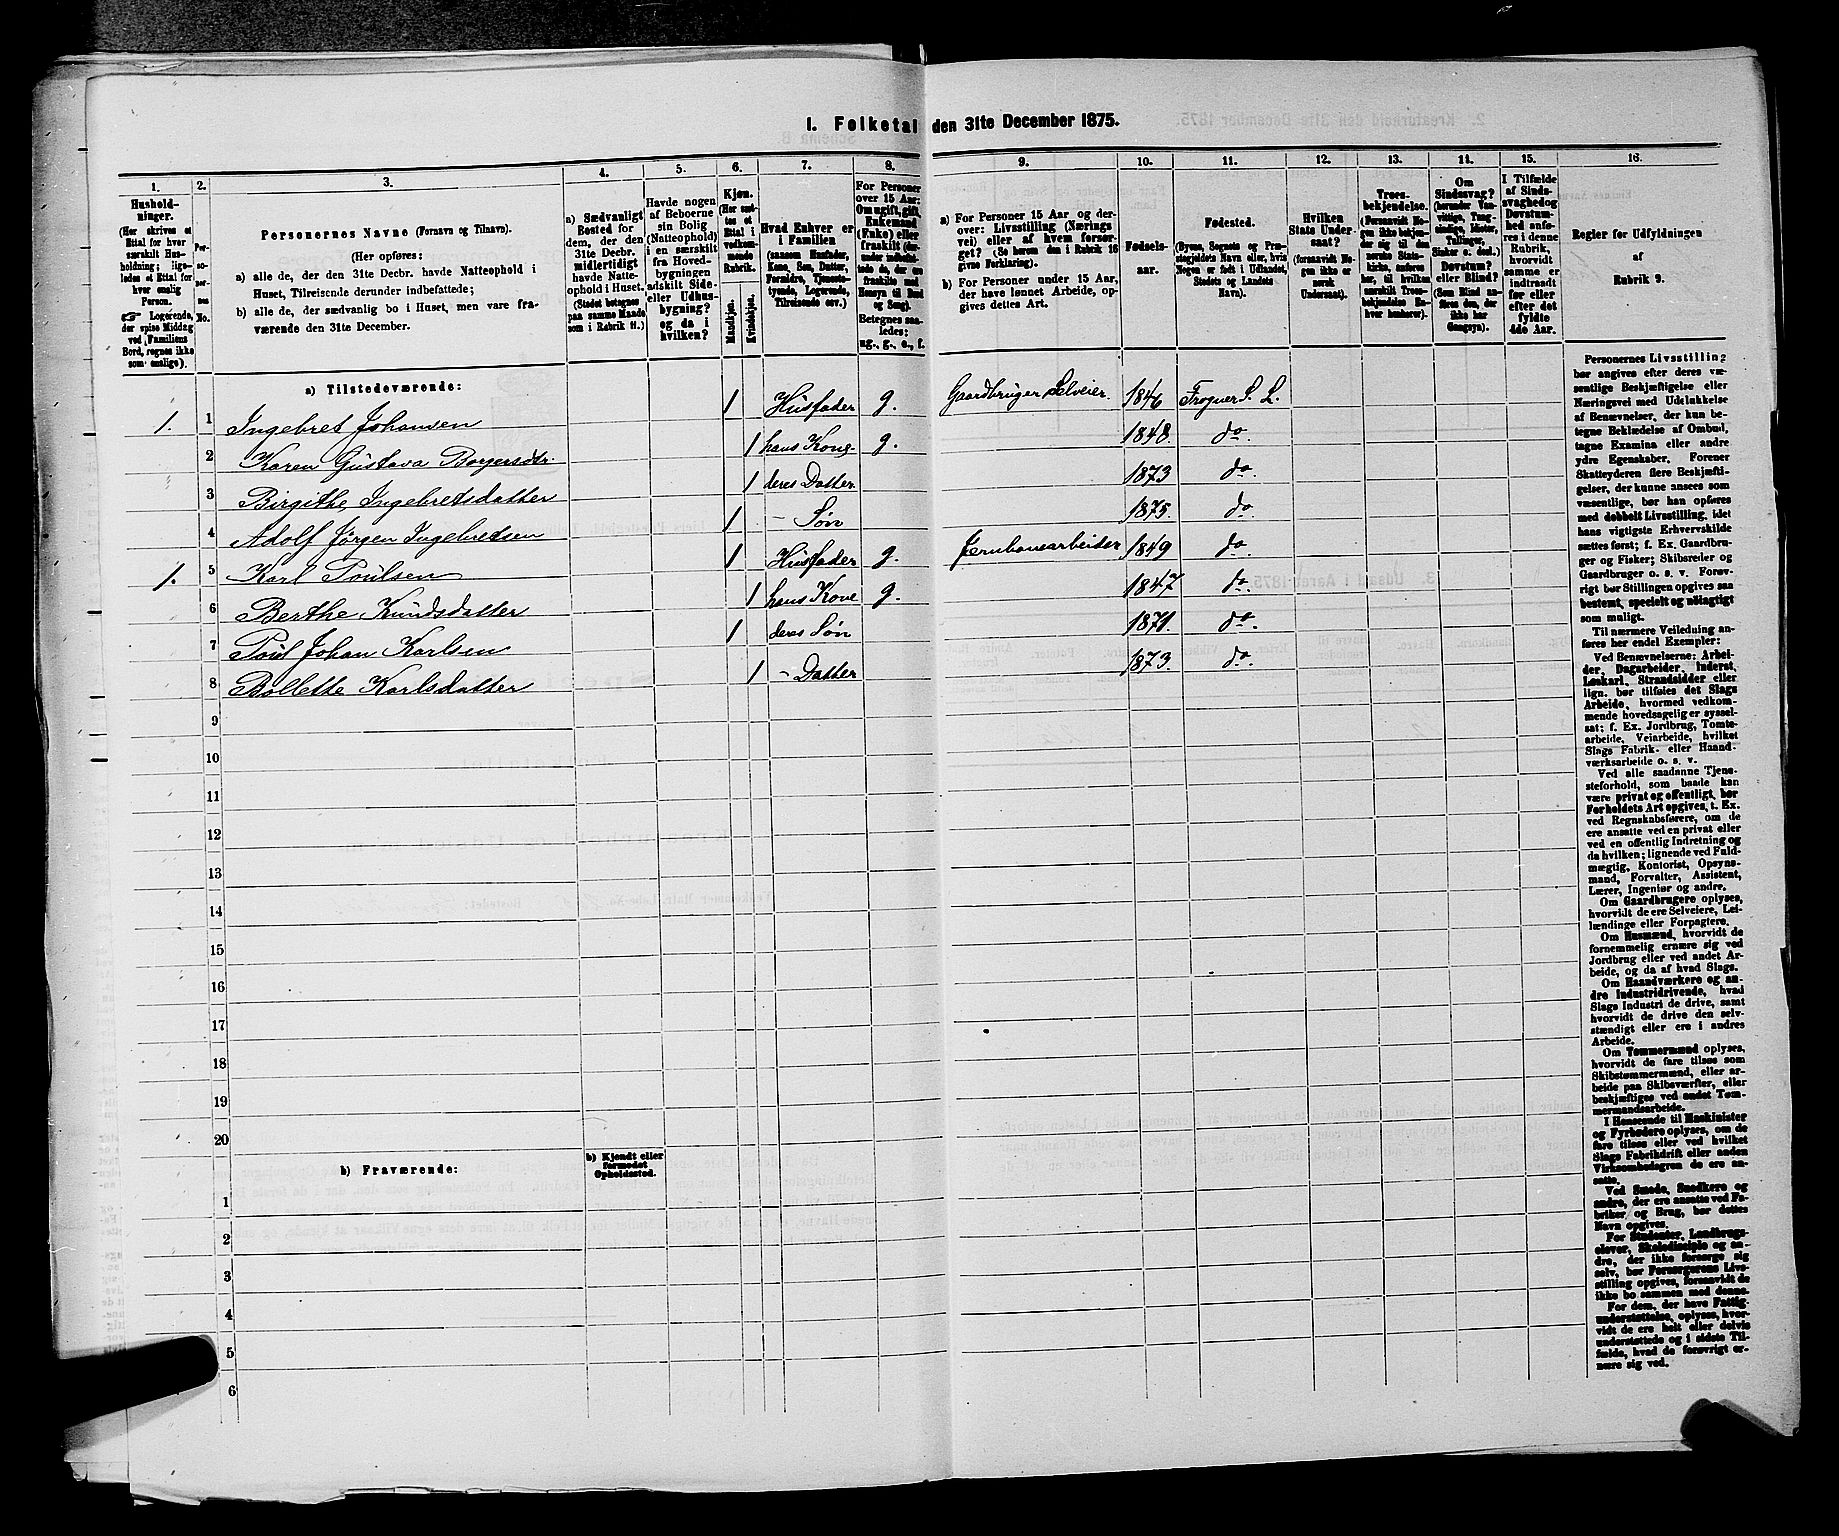 I. Folketal den 31te December 1875.
1.
2.
3.
4.
5.
6.
7.
8.
9.
10.
11.
12.
13.
14.
15.
16.
Hushold-
ninger.
(Her skrives et
Ettal for hver
særskilt Hus-
holdning; lige-
ledes et Ettal for
hver enslig
Person.
☞ Logerende,
der spise Middag
ved Familiens
Bord, regnes ikke
som enslige).
Per-
so-
ner-
nes
No.
Personernes Navne (Fornavn og Tilnavn).
(Her opføres:
a) alle de, der den 31te Decbr. havde Natteophold i
Huset, Tilreisende derunder indbefattede;
b) alle de, der sædvanlig bo i Huset, men vare fra-
værende den 31te December.
a) Sædvanligt
Bosted for
dem, der den
31te Decbr.
midlertidigt
havde Natte-
ophold i Huset.
(Stedet betegnes
paa samme Maade
som i Rubrik 11.)
Havde nogen
af Beboerne
sin Bolig
(Natteophold)
i en særskilt
fra Hoved-
bygningen
adskilt Side-
eller Udhus-
bygning?
og da i
hvilken?
Kjøn.
(Her sæt-
tes et
Ettal i
vedkom-
mende
Rubrik.
Mandkjøn.
Kvindekjøn.
Hvad Enhver er
i Familien
(saasom Husfader,
Kone, Søn, Datter,
Forældre, Tjeneste-
tyende, Logerende,
Tilreisende osv.)
For Personer
over 15 Aar:
Om ugift, gift,
Enkemand
(Enke) eller
fraskilt
Betegnes saa-
ledes:
ug., g., e., f.
a) For Personer 15 Aar og der-
over: Livsstilling (Nærings
vei) eller af hvem forsør-
get? (Se herom den i Rubrik 16
givne Forklaring).
b) For Personer under 15 Aar,
der have lønnet Arbeide, op-
gives dettes Art.
Fødsels-
aar.
Fødested.
(Byens, Sognets og Præ-
stegjeldets Navn eller, hvis
Nogen er født i Udlandet,
Stedets og Landets
Navn).
Hvilken
Stats Under-
saat?
(forsaavidt No-
gen ikke er
norsk
Undersaat).
Troes-
bekjendelse.
(Forsaavidt No-
gen ikke bekjen-
der sig til den
norske Stats-
kirke, anføres
her, til hvilken
særskilt Troes-
bekjendelse En-
hver henhører).
Om
Sindssvag?
Døvstum?
eller Blind?
I Tilfælde
af Sinds-
svaghed og
Døvstum-
hed anfø-
res i denne
Rubrik,
hvorvidt
samme er
indtraadt
før eller
efter det
fyldte
4de Aar.
Regler for Udfyldningen
af
Rubrik 9.
a) Tilstedeværende:
1. 1 Ingebret Johansen 1 Husfader g. Gaardbruger Selveier. 1846 Frogner S. L.
2 Karen Gustava Borgersdtr. 1 hans Kone g. 1848. do.
3 Birgithe Ingebretsdatter 1 deres Datter 1873 do.
4 Adolf Jørgen Ingebretsen 1 – Søn 1875. do.
1. 5 Karl Poulsen 1 Husfader g. Jernbanearbeider 1849 do.
6 Berthe Knudsdatter 1 hans Kone g. 1847 do.
7 Poul Johan Karlsen 1 deres Søn 1871. do.
8 Bollette Karlsdatter 1 – Datter 1873. do.
9
10
11
12
13
14
15
16
17
18
19
20
b) Fraværende:
b) Kjendt eller
formodet
Opholdssted.
1
2
3
4
5
6
Personernes Livsstilling
bør angives efter deres væ-
sentlige Beskjæftigelse eller
Næringsvei med Udelukkelse
af Benævnelser, der kun be-
tegne Beklædelse af Ombud,
tagne Examina eller andre
ydre Egenskaber. Forener
Skatteyderen flere Beskjæfti-
gelser, der kunne ansees som
væsentlige, bør han opføres
med dobbelt Livsstilling, idet
hans vigtigste Erhvervskilde
sættes først; f. Ex. Gaardbru-
ger og Fisker; Skibsreder og
Gaardbruger o. s. v. Forøv-
rigt bør Stillingen opgives saa
bestemt, specielt og nøiagtigt
som muligt.
Til nærmere Veiledning an-
føres her endel Exempler:
Ved Benævnelserne: Arbei-
der, Dagarbeider, Inderst,
Løskarl, Strandsidder eller
lign. bør tilføies det Slags
Arbeide, hvormed vedkom-
mende hovedsagelig er syssel-
sat; f. Ex. Jordbrug, Tomte-
arbeide, Veiarbeide, hvilket
Slags Fabrik- eller Haand-
værksarbeide o. s. v.
Ved alle saadanne Tjene-
steforhold, som baade kan
være privat og offentligt, bør
Forholdets Art opgives, t. Ex.
ved Regnskabsførere, om de
ere ansatte ved en privat eller
ved en offentlig Indretning og
da hvilken; lignende ved Fuld-
mægtig, Kontorist, Opsyns-
mand, Forvalter, Assistent,
Lærer, Ingeniør og andre.
Om Gaardbrugere oplyses,
hvorvidt de ere Selveiere, Lei-
lændinge eller Forpagtere.
Om Husmænd, hvorvidt de
fornemmelig ernære sig ved
Jordbrug eller ved andet Ar-
beide, og da af hvad Slags.
Om Haandværkere og an-
dre Industridrivende, hvad
Slags Industri de drive, samt
hvorvidt de drive den selv-
stændigt eller ere i andres
Arbeide.
Om Tømmermænd oplyses,
hvorvidt de fare tilsøs som
Skibstømmermænd, eller ar-
beide paa Skibsværfter, eller
beskjæftiges ved andet Tøm-
mermandsarbeide.
I Henseende til Maskinister
og Fyrbødere oplyses, om de
fare tilsøs eller ved hvilket
Slags Fabrikdrift eller anden
Virksomhedsgren de ere an-
satte.
Ved Smede, Snedkere og
andre, der ere ansatte ved Fa-
briker og Brug, bør dettes
Navn opgives.
For Studenter, Landbrugs-
elever, Skoledisciple og an-
dre, der ikke forsørge sig
selv, bør Forsørgerens Livs-
stilling opgives, forsaavidt de
ikke bo sammen med denne.
For dem, der have Fattig-
understøttelse, oplyses, hvor-
vidt de ere helt eller delvis
understøttede og i sidste Til-
fælde, hvad de forøvrigt er-
nære sig ved.